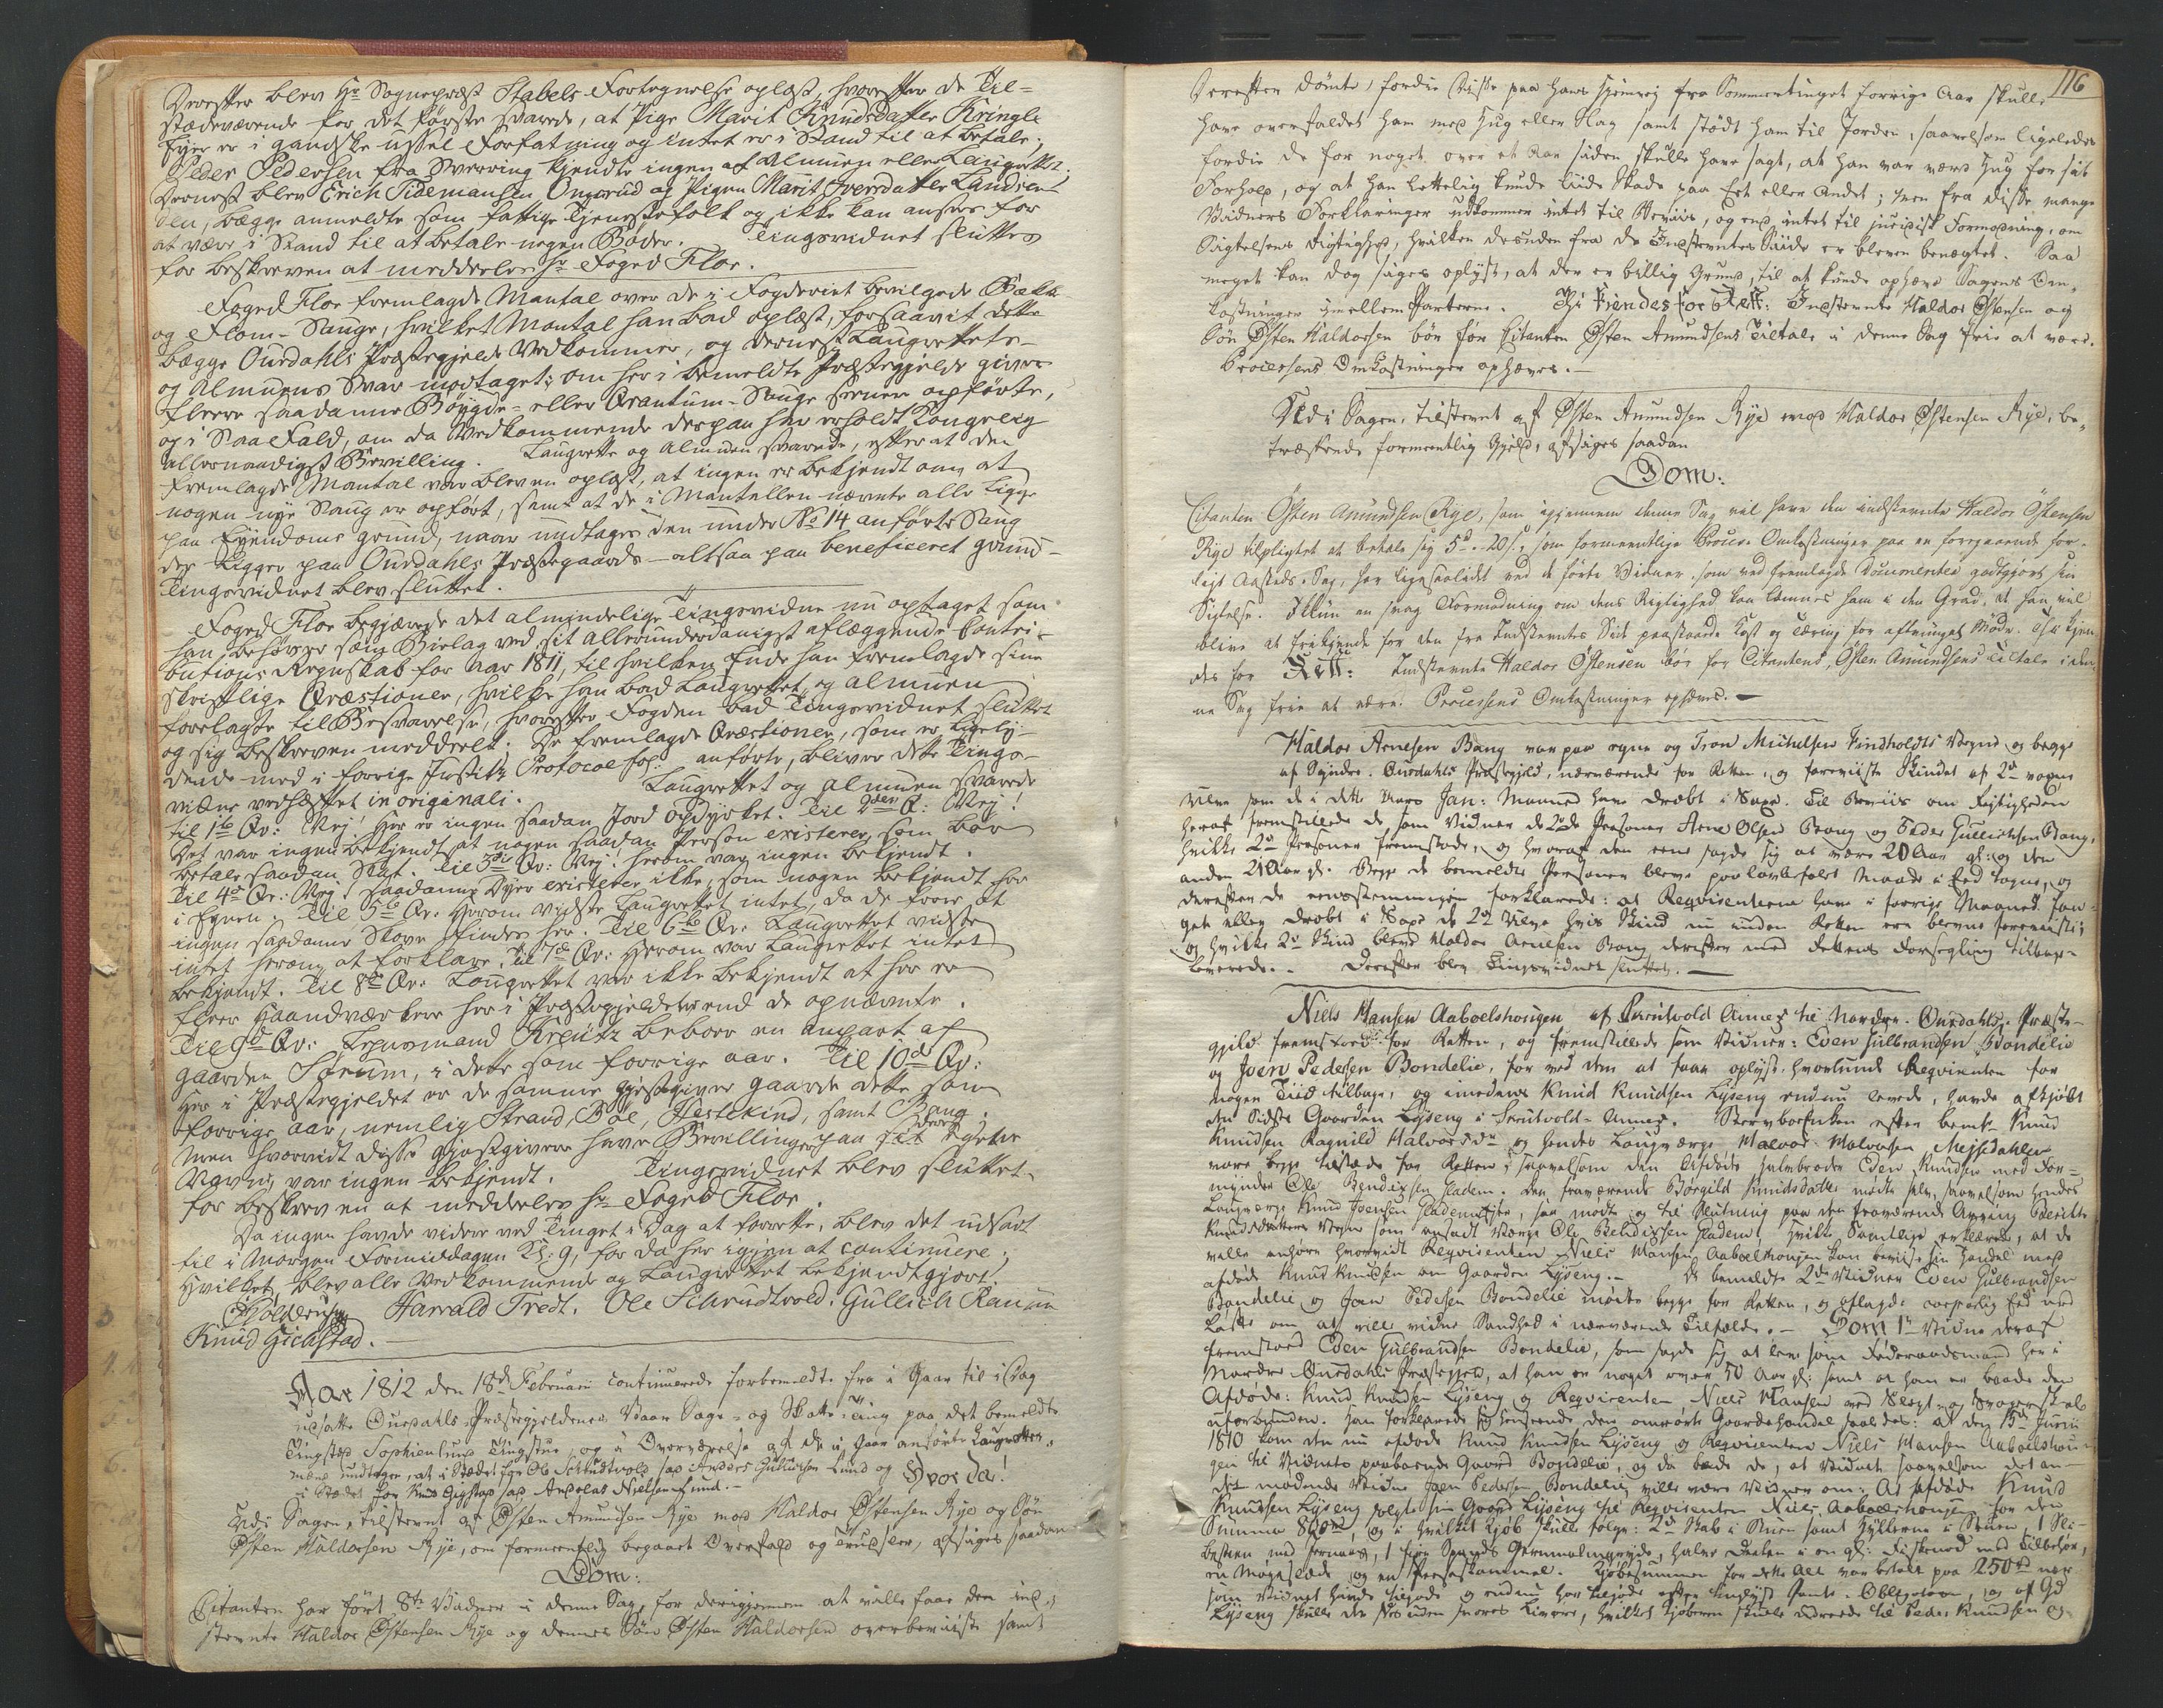 Derefter blev Hr Sognepræst Stabels Fortegnelse oplæst, hvorefter de Til-
stædeværende for det første svarede, at Pige Marit Knudsdatter Kringle
Ejer er i gandske ussel Forfatning og intet er i Stand til at betale;
Peder Pedersen fra Sverrig kjendte ingen af Almuen eller Laugrettet.
Dernæst blev Erich Tidemansen Ongerud og Pigen Marit Iversdatter
bægge anmeldte som fattige Tjenestefolk og ikke kan ansees for
at være i Stand til at betale nogen Bøder. Tingsvidnet sluttes
for beskreven at meddeeles Hr Foged Flor.
Foged Flor fremlagde Mantal over de i Fogderiet bevilgede Bekke
og Flom-Sauge, hvilket Mantal han bad oplæst, forsaavit dette
bægge Ourdahls Præstegjelde Vedkommer, og dernæst Laugrettets
og Almuens Svar modtaget: om her i bemeldte Præstegjeld gives
fleere saadanne Bøygde- eller Qvantum-Sauge senere opførte,
og i Saafald, om da Vedkommende derpaa har erholdt Kongelig
allernaadigst Bevilling. Laugrette og Almuen svarede, efterat den
fremlagde Mantal var bleven oplæst, at ingen er bekjendt om, at
nogen nye Saug er opført, samt at de i Mantallen nævnte alle ligge
paa Eyendoms grund, naar undtages den under No 14 anførte Saug
der ligger paa Ourdahls Præstegaards- altsaa paa beneficeret grund-
Tingsvidnet blev sluttet.
Foged Flor begjærede det almindelige Tingsvidne nu optaget som
han behøver som Bielag ved sit allerunderdanigst aflæggende Contri-
butions Regnskab for Aar 1811, til hvilken Ende han fremlagde sine
skriftlige Qvæstioner, hvilke han bad Laugrettet og Almuen
forelagte til Besvarelse, hvorefter Fogden bad Tingsvidnet sluttet
og sig beskreven meddeelt; De fremlagde Qvæstioner, som er ligely-
dende med i forrige Justits Protocol fol: anførte, bliver dette Tings-
vidne vedhæftet in originali. Laugrettet og Almuen svarede
til 1te Qv: Nej! Her er ingen saadan Jord opdyrket. Til 2den Q: Nej!
Det var ingen bekjendt at nogen saadan Person existerer, som bør
betale saadan Skat. Til 3die Qv: Nej! herom var ingen bekjendt.
Til 4de Qv: Nej! saadanne Dyer existerer ikke, som nogen bekjendt her
i Egnen. Til 5te Qv: Herom vidste Laugrettet intet, da de troer at
ingen saadanne Skove findes her. Til 6te Qv: Laugrettet vidste
intet herom at forklare. Til 7de Qv: Herom var Laugrettet intet
bekjendt. Til 8de Qv: Laugrettet var ikke bekjendt at her er
fleer Haandværkere her i Præstegjeldet end de opnævnte.
Til 9de Qv: Lensmand Kreutz beboer en anpart af
gaarden Sørum, i dette som forrige aar. Til 10de Qv:
Her i Præstegjeldet er de samme gjæstgiver gaarde dette som
forrige aar, nemlig Strand, Bøe, Hestekind, samt Bang;
men hvorvidt disse gjæstgivere have Bevillinger paa deres egne
Navne, var ingen bekjendt. Tingsvidnet blev sluttet
for beskreven at meddeeles Hr Foged Flor.
Da ingen havde videre ved Tinget i Dag at forrette, blev det udsat
til i Morgen Formiddagen Kl: 9, for da her igjen at continuere;
hvilket blev alle Vedkommende og Laugrettet bekjendtgjort!
Harald Tredt. Ole Schrudtvold. Gullich Ranum
Knud Gichstad.
Aar 1812 den 18de Februari continuerede forbemeldte fra i Gaar til i Dag
udsatte Ourdahls Præstegjeldenes Vaar Sage- og Skatte-Ting paa det bemeldte
Tingsted Sophienlund Tingstue, og i Overværelse af de i Gaar anførte Laugrettes-
mænd undtagen, at i Stædet for Ole Schrudtvold sad Anders Gulbrandsen Lund og
i Stædet for Knud Gigstad sad Andreas Nielsen Lund.- Hvor Da!
Udi Sagen, tilstevnt af Østen Amundsen Rye mod Haldor Østensen Rye og Søn
Østen Haldorsen Rye, om formeentlig begaaet Overfald og Trudsler, afsiges saadan
Dom:
Citanten har ført 8te Vidner i denne Sag, for derigjennem at ville faae den ind-
stevnte Haldor Østensen Rye og dennes Søn Østen Haldorsen overbeviiste samt
116
derefter dømte, fordie disse paa hans hjemvej fra Sommertinget forrige Aar skulle
have overfaldet ham med Hug eller Slag samt stødt ham til Jorden, saavelsom ligeledes
fordie de for noget over et Aar siden skulle have sagt, at han var værd Hug for sit
Forhold, og at han lettelig kunde lide Skade paa Eet eller Andet; men fra disse mange
Vidners Forklaringer udkommer intet til Beviis, og end intet til juridisk Formodning, om
Sigtelsens Rigtighed, hvilken desuden fra de Indstevntes Side er bleven benægtet. Saa
meget kan dog siges oplyst, at der er billig Grund, til at kunde ophæve Sagens Om-
kostninger imellem Parterne. Thi kiendes for Rett: Indstevnte Haldor Østensen og
Søn Østen Haldorsen bør for Citanten Østen Amundsens Tiltale i denne Sag frie at være.
Processens Omkostninger ophæves.-
Udi Sagen, tilstevnt af Østen Amundsen Rye mod Haldor Østensen Rye, be-
træffende formeentlig Gjeld, afsiges saadan
Dom:
Citanten Østen Amundsen Rye, som igjennem denne Sag vil have den indstevnte Haldor Østensen
Rye tilpligtet at betale sig 5d. 20s., som formeentlige Proces Omkostninger paa en foregaaende for-
ligt Aasteds-Sag, har ligesaalidet ved de førte Vidner som ved fremlagde Documenter godtgjort sin
Sigtelse. Ikkun en svag Formodning om dens Rigtighed kan lemnes ham i den Grad, at han vil
blive at frikjende for den fra Indstevntes Side paastaaede Kost og Tæring for aftvunget Møde. Thi kjen-
des for Rett: Indstevnte Haldor Østensen bør for Citantens, Østen Amundsens Tiltale i den-
ne Sag frie at være. Processens Omkostninger ophæves.-
Haldor Arnesen Bang var paa egne og Tron Michelsen Findholdts Vegne og begge
af Syndre Ourdahls Præstegjeld, nærværende for Retten, og foreviiste Skindet af 2de voxne
Ulve som de i dette Aars Jan: Maaned have dræbt i Saxe. Til Beviis om Rigtigheden
heraf fremstillede de som Vidner de 2de Personer Arne Olsen Bang og Peder Gullichsen Bang,
hvilke 2de Personer fremstode, og hvoraf den eene sagde sig at være 20 Aar gl: og den
anden 21 Aar gl. Begge de bemeldte Personer bleve paa lovbefalet Maade i Eed tagne, og
derefter de eenstemmigen forklarede: at Reqvirenterne have i forrige Maaned
dræbt i Saxe de 2de Ulve hvis Skind nu inden Retten ere blevne foreviiste;
og hvilke 2de Skind bleve Haldor Arnesen Bang derefter med Rettens Forsegling tilbage-
leverede.- Derefter blev Tingsvidnet sluttet.-
Niels Hansen Aaboelshougen af Skrutvold Annex til Nordre Ourdahls Præste-
gjeld fremstoed for Retten, og fremstillede som Vidner: Even Gulbrandsen Bondelie
og Joen Pedersen Bondelie, for ved dem at faae oplyst hvorlunde Reqvirenten for
nogen Tiid tilbage, og imedens Knud Knudsen Lyseng endnu levede, havde afkjøbt
den Sidste Gaarden Lyseng i Skrutvold Annex. Sterv boe Enken efter bemte Knud
Knudsen Ragnild Halvorsdr og hendes Laugværge Halvor Halvorsen Mejsdahlen
vare begge tilstæde for Retten, saavelsom den Afdødes halvbroder Even Knudsen med For-
mynder Ole Bendixsen Fladem. Den fraværende Børgild Knudsdatter mødte selv, saavelsom hendes
Laugværge Knud Joensen saa mødte og til Slutning paa den fraværende Arving Berthe
Knudsdatters Vegne som ansadt Værge Ole Bendixsen Fladem, hvilke Samtlige erklærede, at de
ville anhøre hvorvidt Reqvirenten Niels Hansen Aaboelhougen kan bevise sin Handel med
afdøde Knud Knudsen om Gaarden Lyseng.- De bemeldte 2de Vidner Even Gulbrandsen
Bondelie og Joen Pedersen Bondelie mødte begge for Retten, og aflagde corporlig Eed med
Løfte om at ville vidne Sandhed i nærværende Tilfælde.- Som 1te Vidne deraf
fremstoed Even Gulbrandsen Bondelie, som sagde sig at leve som Føderaadsmand her i
Nordre Ourdahls Præstegjeld, at han er noget over 50 Aar gl: samt at han er baade den
Afdøde: Knud Knudsen Lyseng og Reqvirenten, Niels Hansen med Slegt- og Svogerskab
uforbunden. Han forklarede sig henseende den omrørte Gaardehandel saaledes: at den 15de Junii
1810 kom den nu afdøde Knud Knudsen Lyseng og Reqvirenten Niels Hansen Aaboelshou-
gen til Vidnets paaboende Gaard Bondelie, og da bade de, at Vidnet saavelsom det an-
det mødende Vidne Joen Pedersen Bondelie ville være Vidner om: At afdøde Knud
Knudsen Lyseng solgte sin Gaard Lyseng til Reqvirenten Niels Aaboelshougen for den
Summa 800rd, og i hvilket Kjøb skulle følge: 2de Skab i Stuen samt Hyllerne i Stuen, 1 Sli-
besteen med Jernaas, 1 fiire Spands Jernmalmgryde, halve Deelen i en gl: Fiskenod med Tilbehør,
en Møgslæde og en Persestammel. Kjøbesummen for dette Alt var betalt paa 250rd nær
som Vidnet havde tilgode og endnu har tilgode efter tinglyst Pante-Obligation, og af Gd
Lyseng skulle der og saa svares Livøre, hvilket Kjøberen skulle udrede til Peder Knudsen og